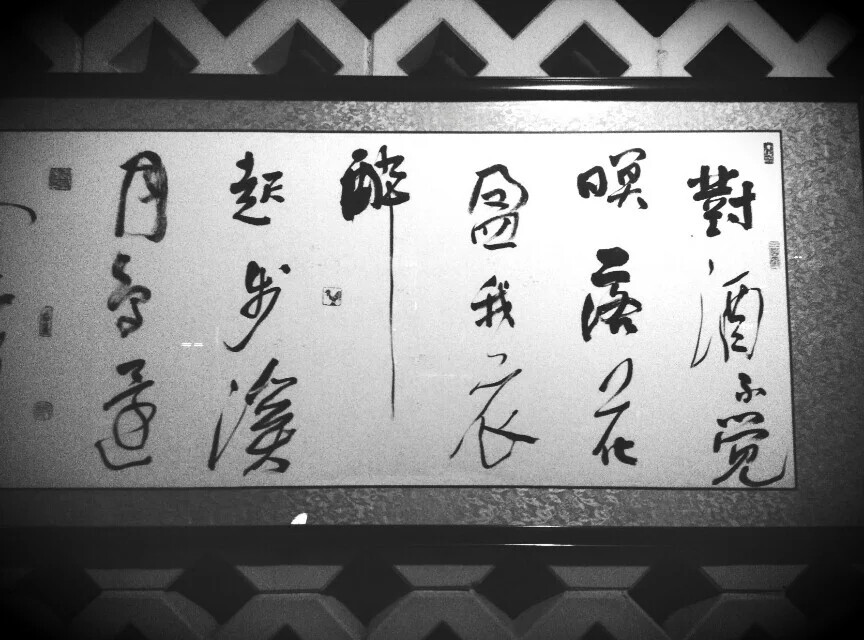 對酒不覺
暝落花
盈我衣
醉
起步溪
月鳥還